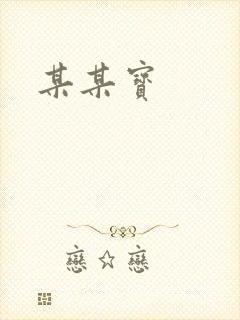 某某寶
戀☆戀